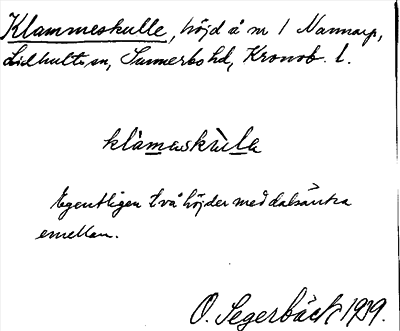 Klammeskulle, höjd å m 1 Nannarp,
Lidhults sn, Sunnerbo hd, Kronob. l.
klàmaskùla
Egentligen två höjder med dalsänka
emellan.
O. Segerbäck 1939.